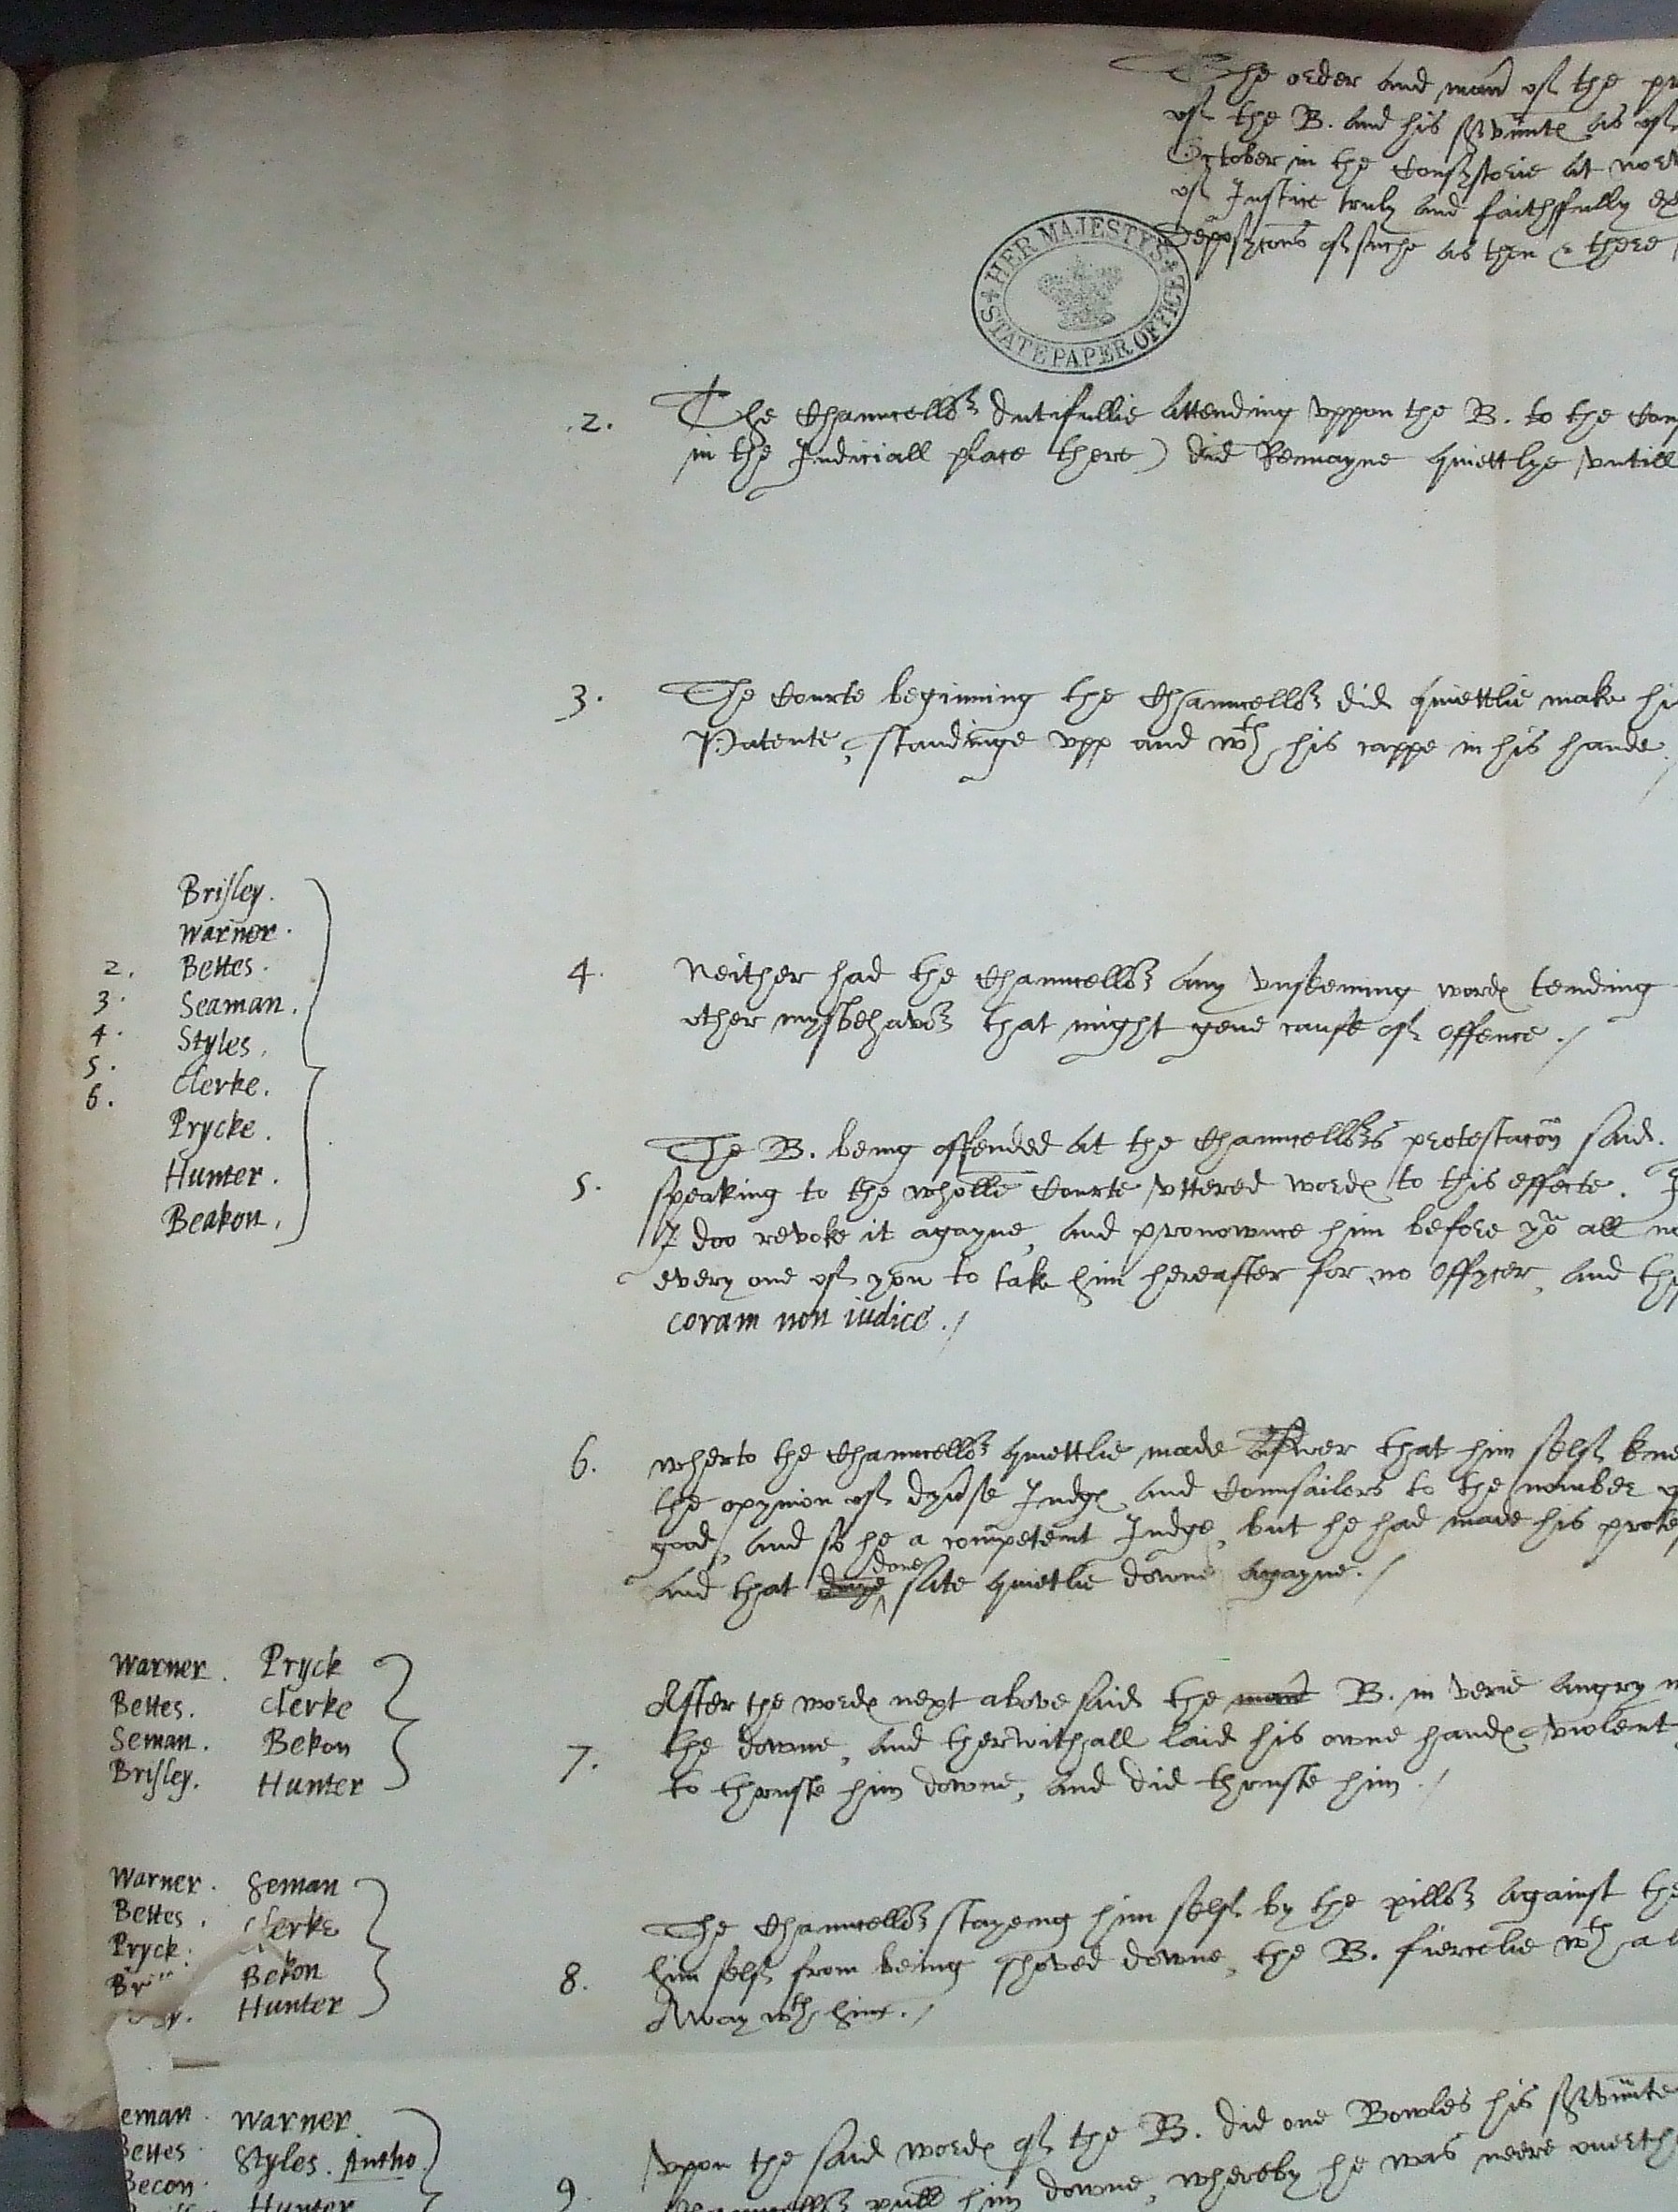 The order and man̄ of the pr
of the B. and his s̄rvunte as of
October in the Consystorie at Nor
of Justice truly and faithffully
Deposyc̄ons of suche as then & there
HER MAJESTY'S
STATE PAPER OFFICE
2. The Chauncellor dutifullie attending vppon the B. to the Con
in the Judiciall place there) did Remayne quiettlye vntill
3. The Courte beginning the Chauncellor did quiettlie make hi
Patente, standinge vpp and wth his cappe in his hande./
Brisley.
Warner.
2. Bettes.
3. Seaman.
4. Styles.
5. Clerke.
6. Prycke.
Hunter.
Beakon.
4. Neither had the Chauncellor any vnseeming wordes tending
other mysbehavor that might geue cause of offence./
5. The B. being offended at the Chauncellors protestac̄on said.
speaking to the wholle Courte vttered wordes to this effecte.
I doo revoke it agayne, and pronownce him before yow all no
every one of you to take him hereafter for no offycer, and th
coram non iudice./
6. Wherto the Chauncellor quiettlie made answer that him self kne
the opynion of dyuse Judges and Counsailors to the nomber
good, and so he a competent Judge, but he had made his prote
and that done sate quietlie downe agayne./
Warner. Pryck
Bettes. Clerke
Seman. Bekon
Brisley. Hunter
7. After the wordes next above said the B. in verie angry
the downe, and therwithall laid his owne handes violent
to thruste him downe, and did thruste him./
Warner. Seman
Bettes. Clerke
Pryck. Bekon
Hunter
8. The Chauncellor stayeng him self by the pillor against the
him self from being shoved downe, the B. fiercelie wth a
Away wth him./
eman. Warner.
Bettes. Styles. Antho.
Becon. Hunter
9. Vpon the said wordes of the B. did one Bowles his s̄rvunte
pull him downe, whereby he was neere overth